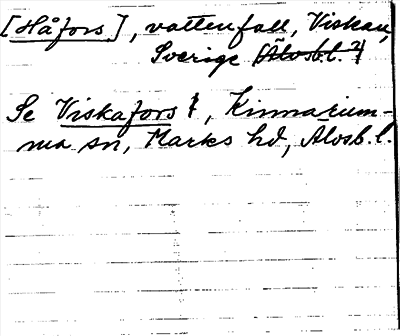 [Håfors], vattenfall, Viskan,
Sverige (Älvsb. l.?)
Se Viskafors, Kinnarum-
ma sn, Marks hd, Älvsb. l.